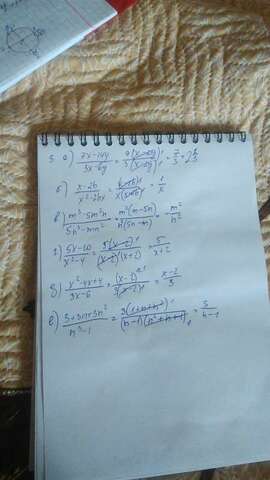 5 а) (7x-14y)/(3x-6y) = 7(x-2y)/3(x-2y) = 7/3 = 2 1/3
б) (x-2b)/(x²-2bx) = (x-2b)/x(x-2b) = 1/x
в) (m³-5m²n)/(5n³-mn²) = m²(m-5n)/n²(5n-m) = -m²/n²
г) (5x-10)/(x²-4) = 5(x-2)/(x-2)(x+2) = 5/(x+2)
д) (x²-4x+4)/(3x-6) = (x-2)²/3(x-2) = (x-2)/3
е) (3+3n+3n²)/(n³-1) = 3(1+n+n²)/(n-1)(n²+n+1) = 3/(n-1)